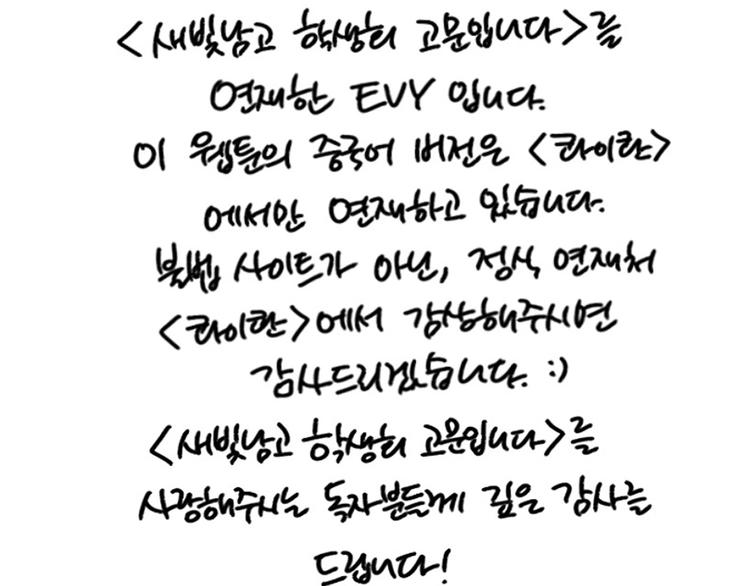 <새빛남고 학생회 고문입니다>를
연재한 EVY 입니다.
이 웹툰의 중국어 버전은 <콰이칸>
에서만 연재하고 있습니다.
불법 사이트가 아닌, 정식 연재처
<콰이칸>에서 감상해주시면
감사드리겠습니다. :)
<새빛남고 학생회 고문입니다>를
사랑해주시는 독자분들께 깊은 감사를
드립니다!